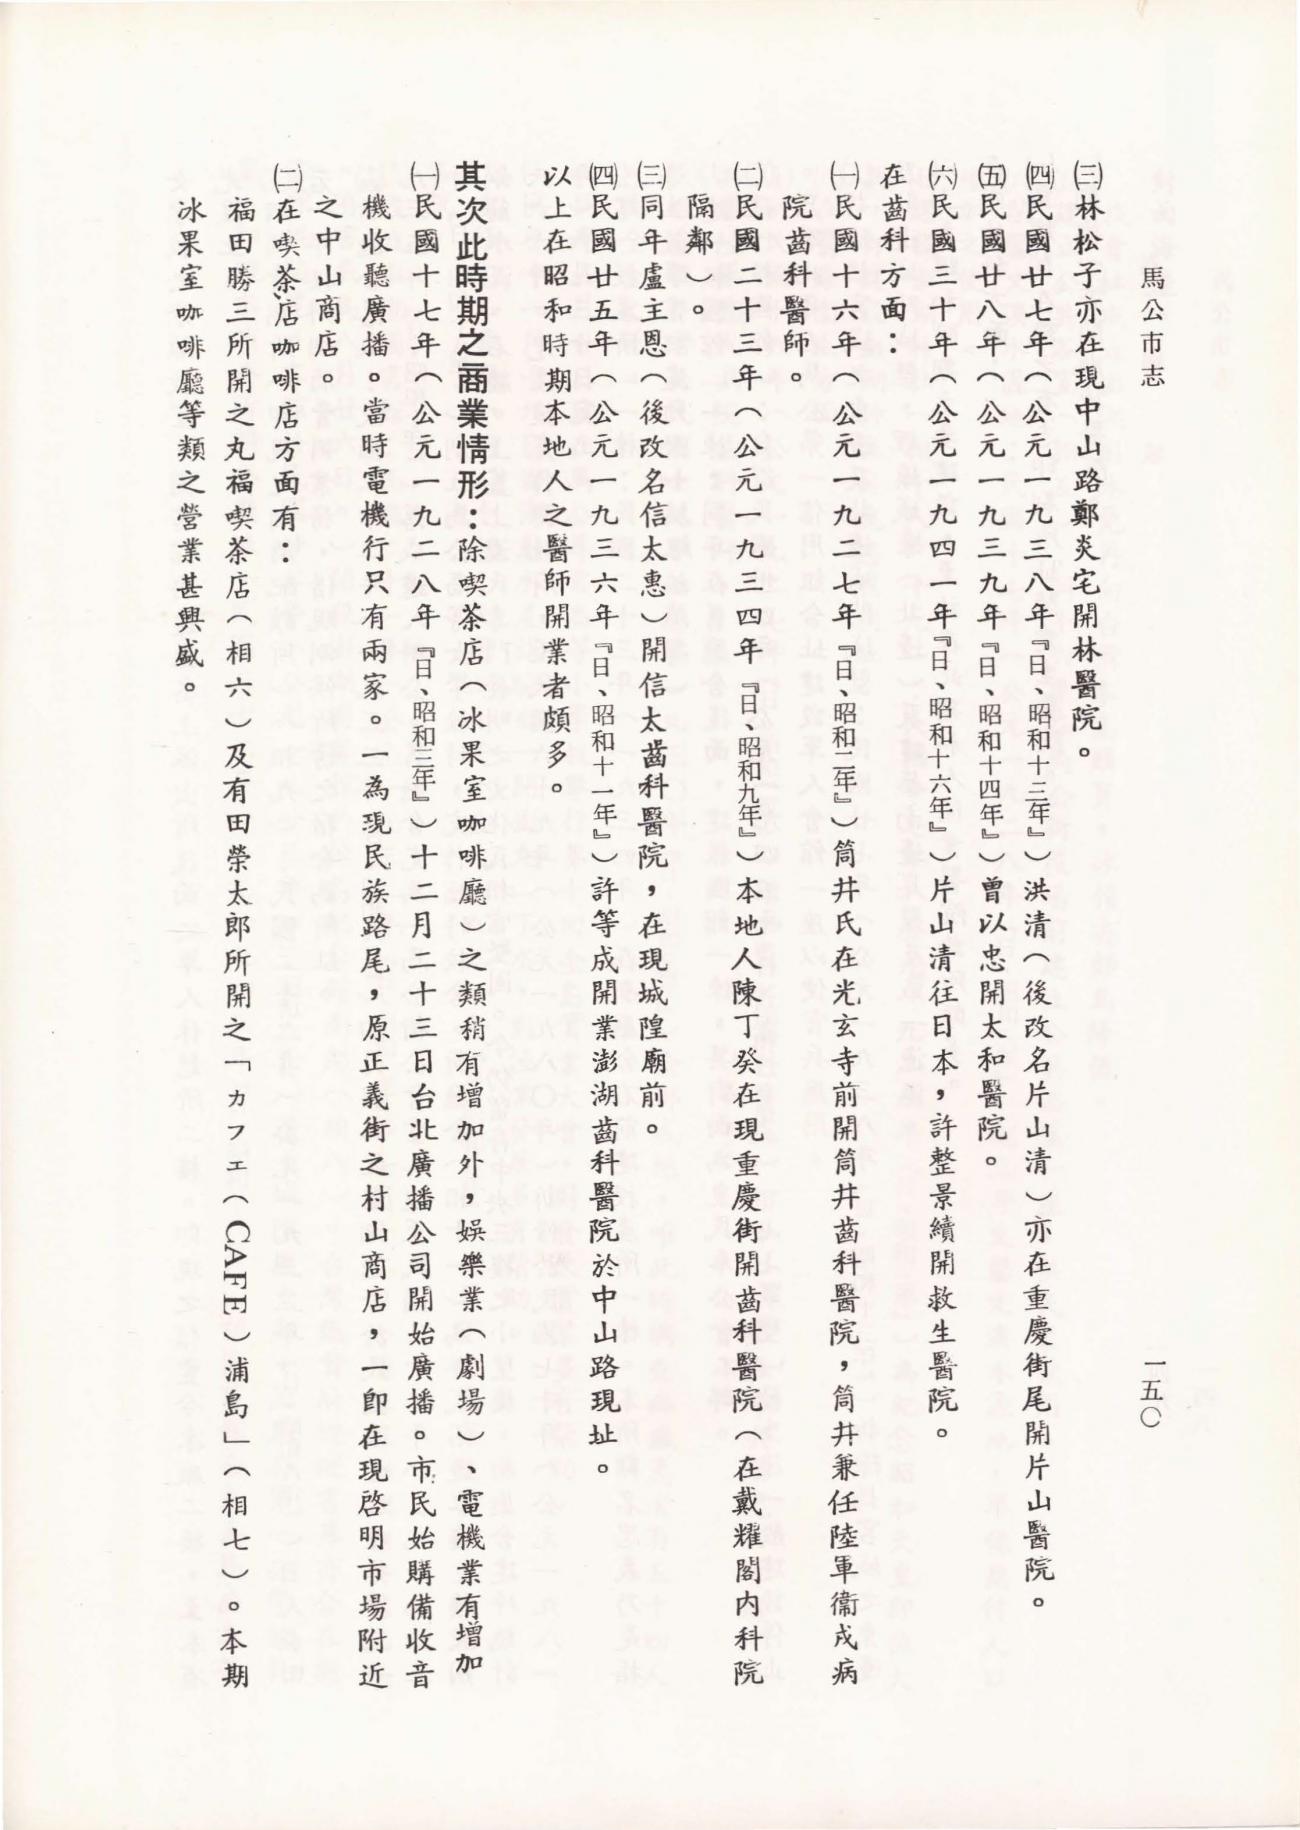 馬公市志
一五〇
㈢林松子亦在現中山路鄭炎宅開林醫院。
㈣民國廿七年（公元一九三八年『日、昭和十三年』）洪清（後改名片山清）亦在重慶街尾開片山醫院。
㈤民國廿八年（公元一九三九年『日、昭和十四年』）曾以忠開太和醫院。
㈥民國三十年（公元一九四一年『日、昭和十六年』）片山清往日本，許整景續開救生醫院。
在齒科方面：
㈠民國十六年（公元一九二七年『日、昭和二年』）筒井氏在光玄寺前開筒井齒科醫院，筒井兼任陸軍衞戍病
院齒科醫師。
㈡民國二十三年（公元一九三四年『日、昭和九年』）本地人陳丁癸在現重慶街開齒科醫院（在戴耀閣內科院
隔鄰）。
㈢同年盧主恩（後改名信太惠）開信太齒科醫院，在現城隍廟前。
㈣民國廿五年（公元一九三六年『日、昭和十一年』）許等成開業澎湖齒科醫院於中山路現址。
以上在昭和時期本地人之醫師開業者頗多。
其次此時期之商業情形：除喫茶店（冰果室咖啡廳）之類稍有增加外，娛樂業（劇場）、電機業有增加
㈠民國十七年（公元一九二八年『日、昭和三年』）十二月二十三日台北廣播公司開始廣播。市民始購備收音
機收聽廣播。當時電機行只有兩家。一為現民族路尾，原正義街之村山商店，一即在現啓明市場附近
之中山商店。
㈡在喫茶店咖啡店方面有：
福田勝三所開之丸福喫茶店（相六）及有田榮太郎所開之「カフェ（CAFE）浦島」（相七）。本期
冰果室咖啡廳等類之營業甚興盛。